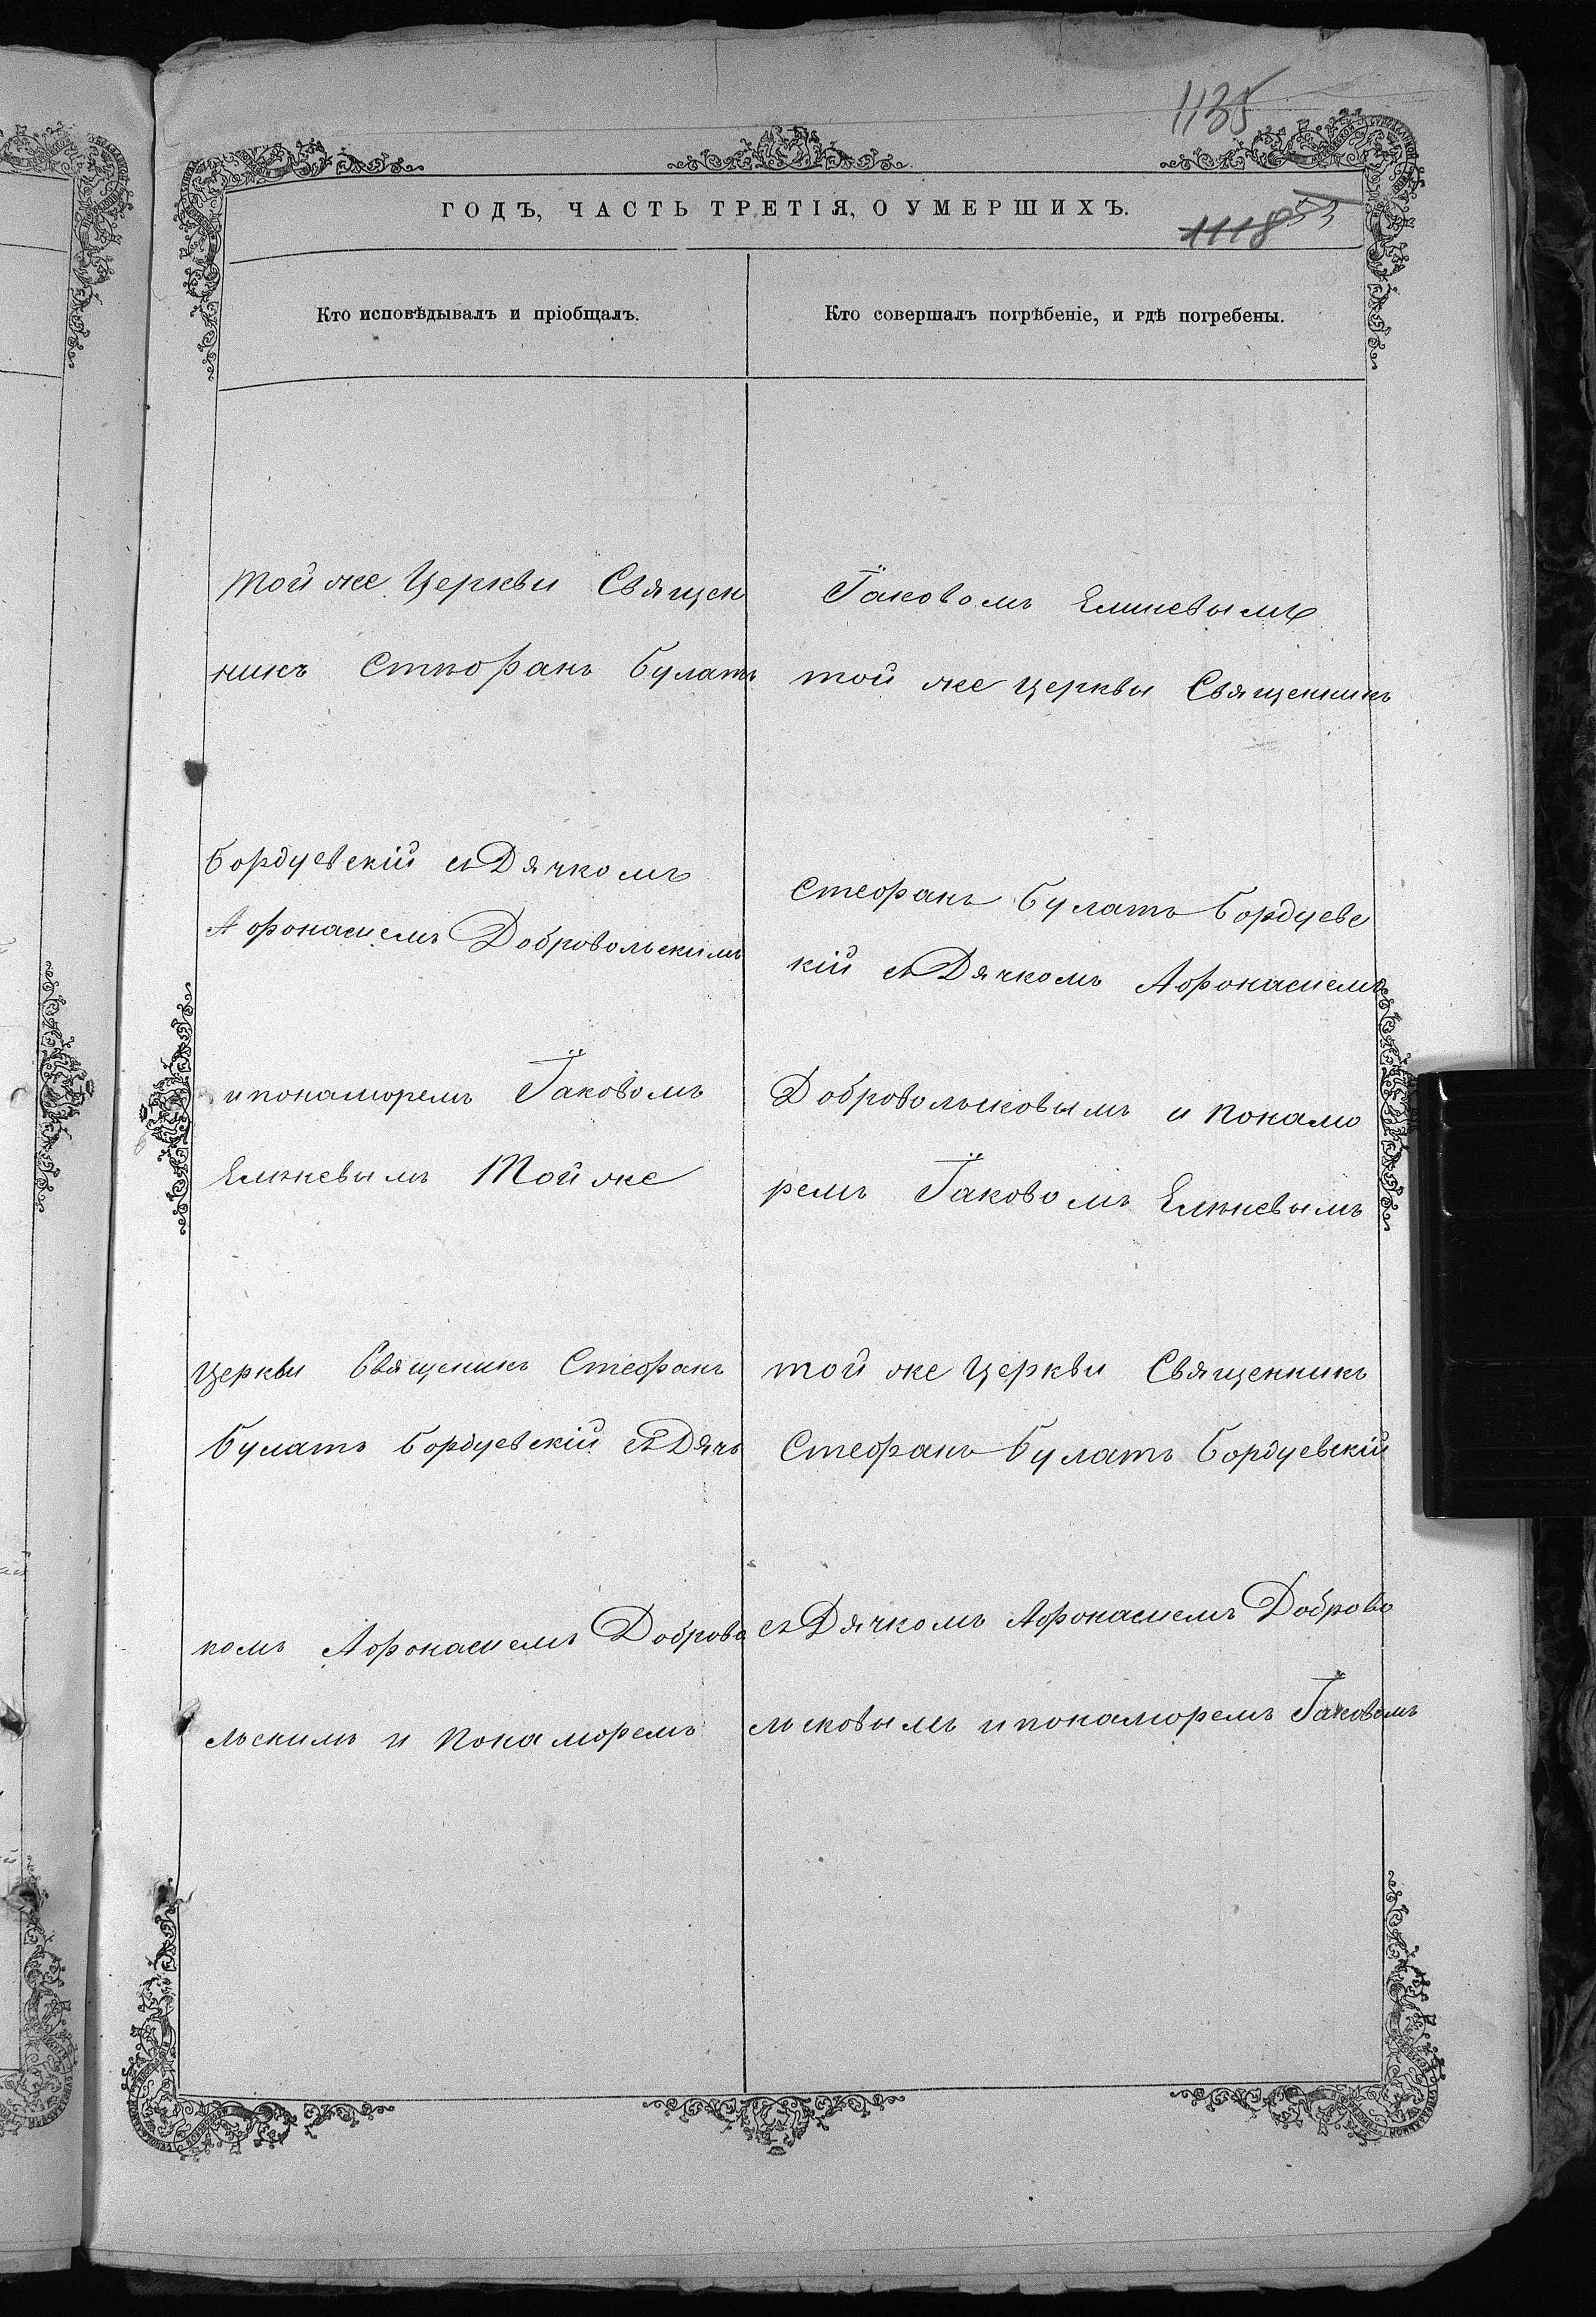 1135
ГОДЪ, ЧАСТЬ ТРЕТІЯ, О УМЕРШИХЪ.
1118
Кто исповѣдывалъ и пріобщалъ.
той же Церкви Священ
никъ Стефанъ Булатъ
Бордуевскій съ Дячкомъ
Афонасиемъ Добровольскимъ
и понаморемъ Їаковомъ
Елиневымъ Той же
Церкви Священикъ Стефанъ
Булатъ Бордуевскій съ Дячь
комъ Афонасиемъ Доброво
льскимъ и понаморемъ
Кто совершалъ погрѣбеніе, и гдѣ погребены.
Їаковомъ Елиневымъ
той же церквы Священникъ
Стефанъ Булатъ Бордуевс
кій съ Дячкомъ Афонасиемъ
Добровольсковымъ и понамо
ремъ Їаковомъ Елиневымъ
той же Церкви Священникъ
Стефанъ Булатъ Бордуевскій
съ Дячкомъ Афонасиемъ Доброво
льсковымъ и понаморемъ Їаковомъ